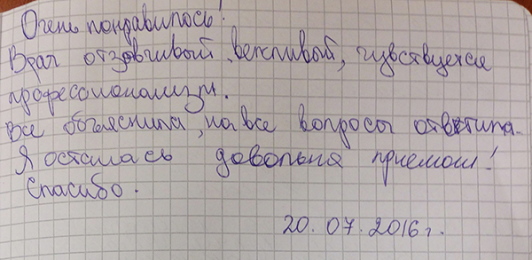 Очень понравилось!
Врач отзывчивый, вежливый, чувствуется
профессионализм.
Все объяснила, на все вопросы ответила.
Я осталась довольна приемом!
Спасибо.
20.07.2016г.